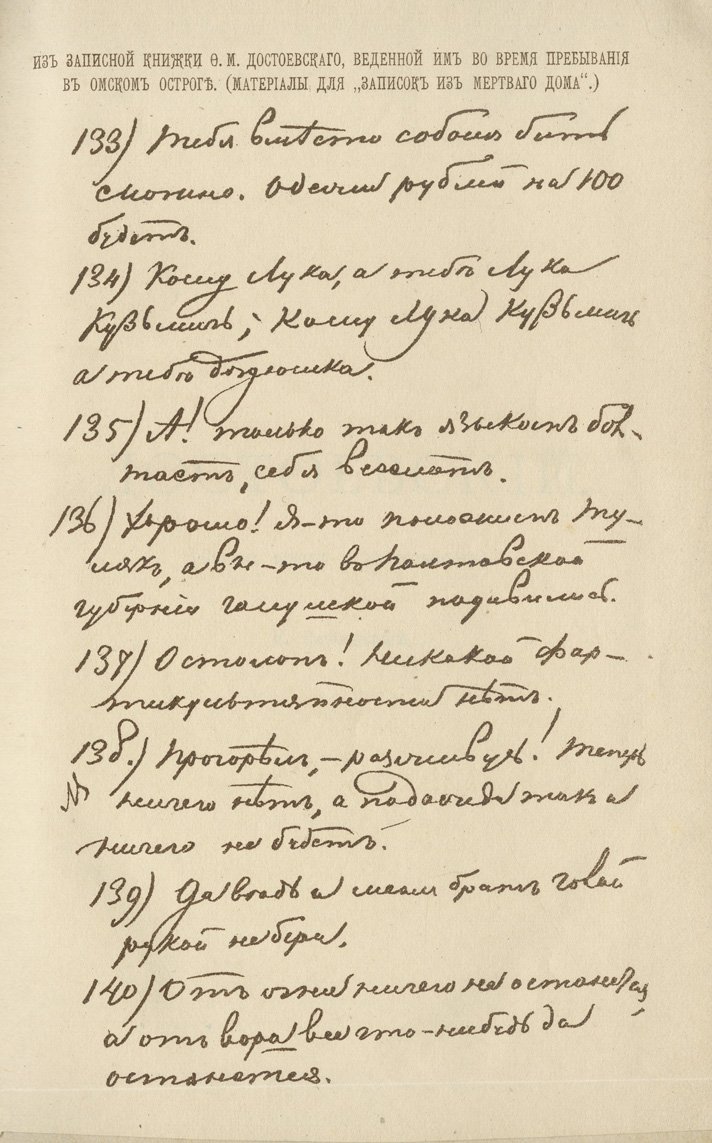 ИЗЪ ЗАПИСНОЙ КНИЖКИ Ѳ. М. ДОСТОЕВСКАГО, ВЕДЕННОЙ ИМЪ ВО ВРЕМЯ ПРЕБЫВАНІЯ
ВЪ ОМСКОМЪ ОСТРОГѢ. (МАТЕРІАЛЫ ДЛЯ „ЗАПИСОКЪ ИЗЪ МЕРТВАГО ДОМА“.)
133) Тебя вмѣсто собаки бить
рублей на 100
будетъ.
134) Кому Лука, а тебѣ Лука
Кузьмичь; Кому Лука Кузьмичь
а тебѣ дядюшка.
135) А! только такъ языкомъ бол-
таетъ, себя веселитъ.
136) Хорошо! Я-то положимъ ту-
лякъ, а вы-то въ Полтавской
губерніи галушкой подавились.
137) Остолопъ! Никакой фар-
тикультяпности нѣтъ.
138.) Прогорѣлъ, – разживусь! Теперь
ничего нѣтъ, а подожди такъ и
ничего не будетъ.
139) Да вѣдь и меня братъ голой
рукой не бери.
140) Отъ огня ничего не останется,
а отъ вора все что-нибудь да
останется.